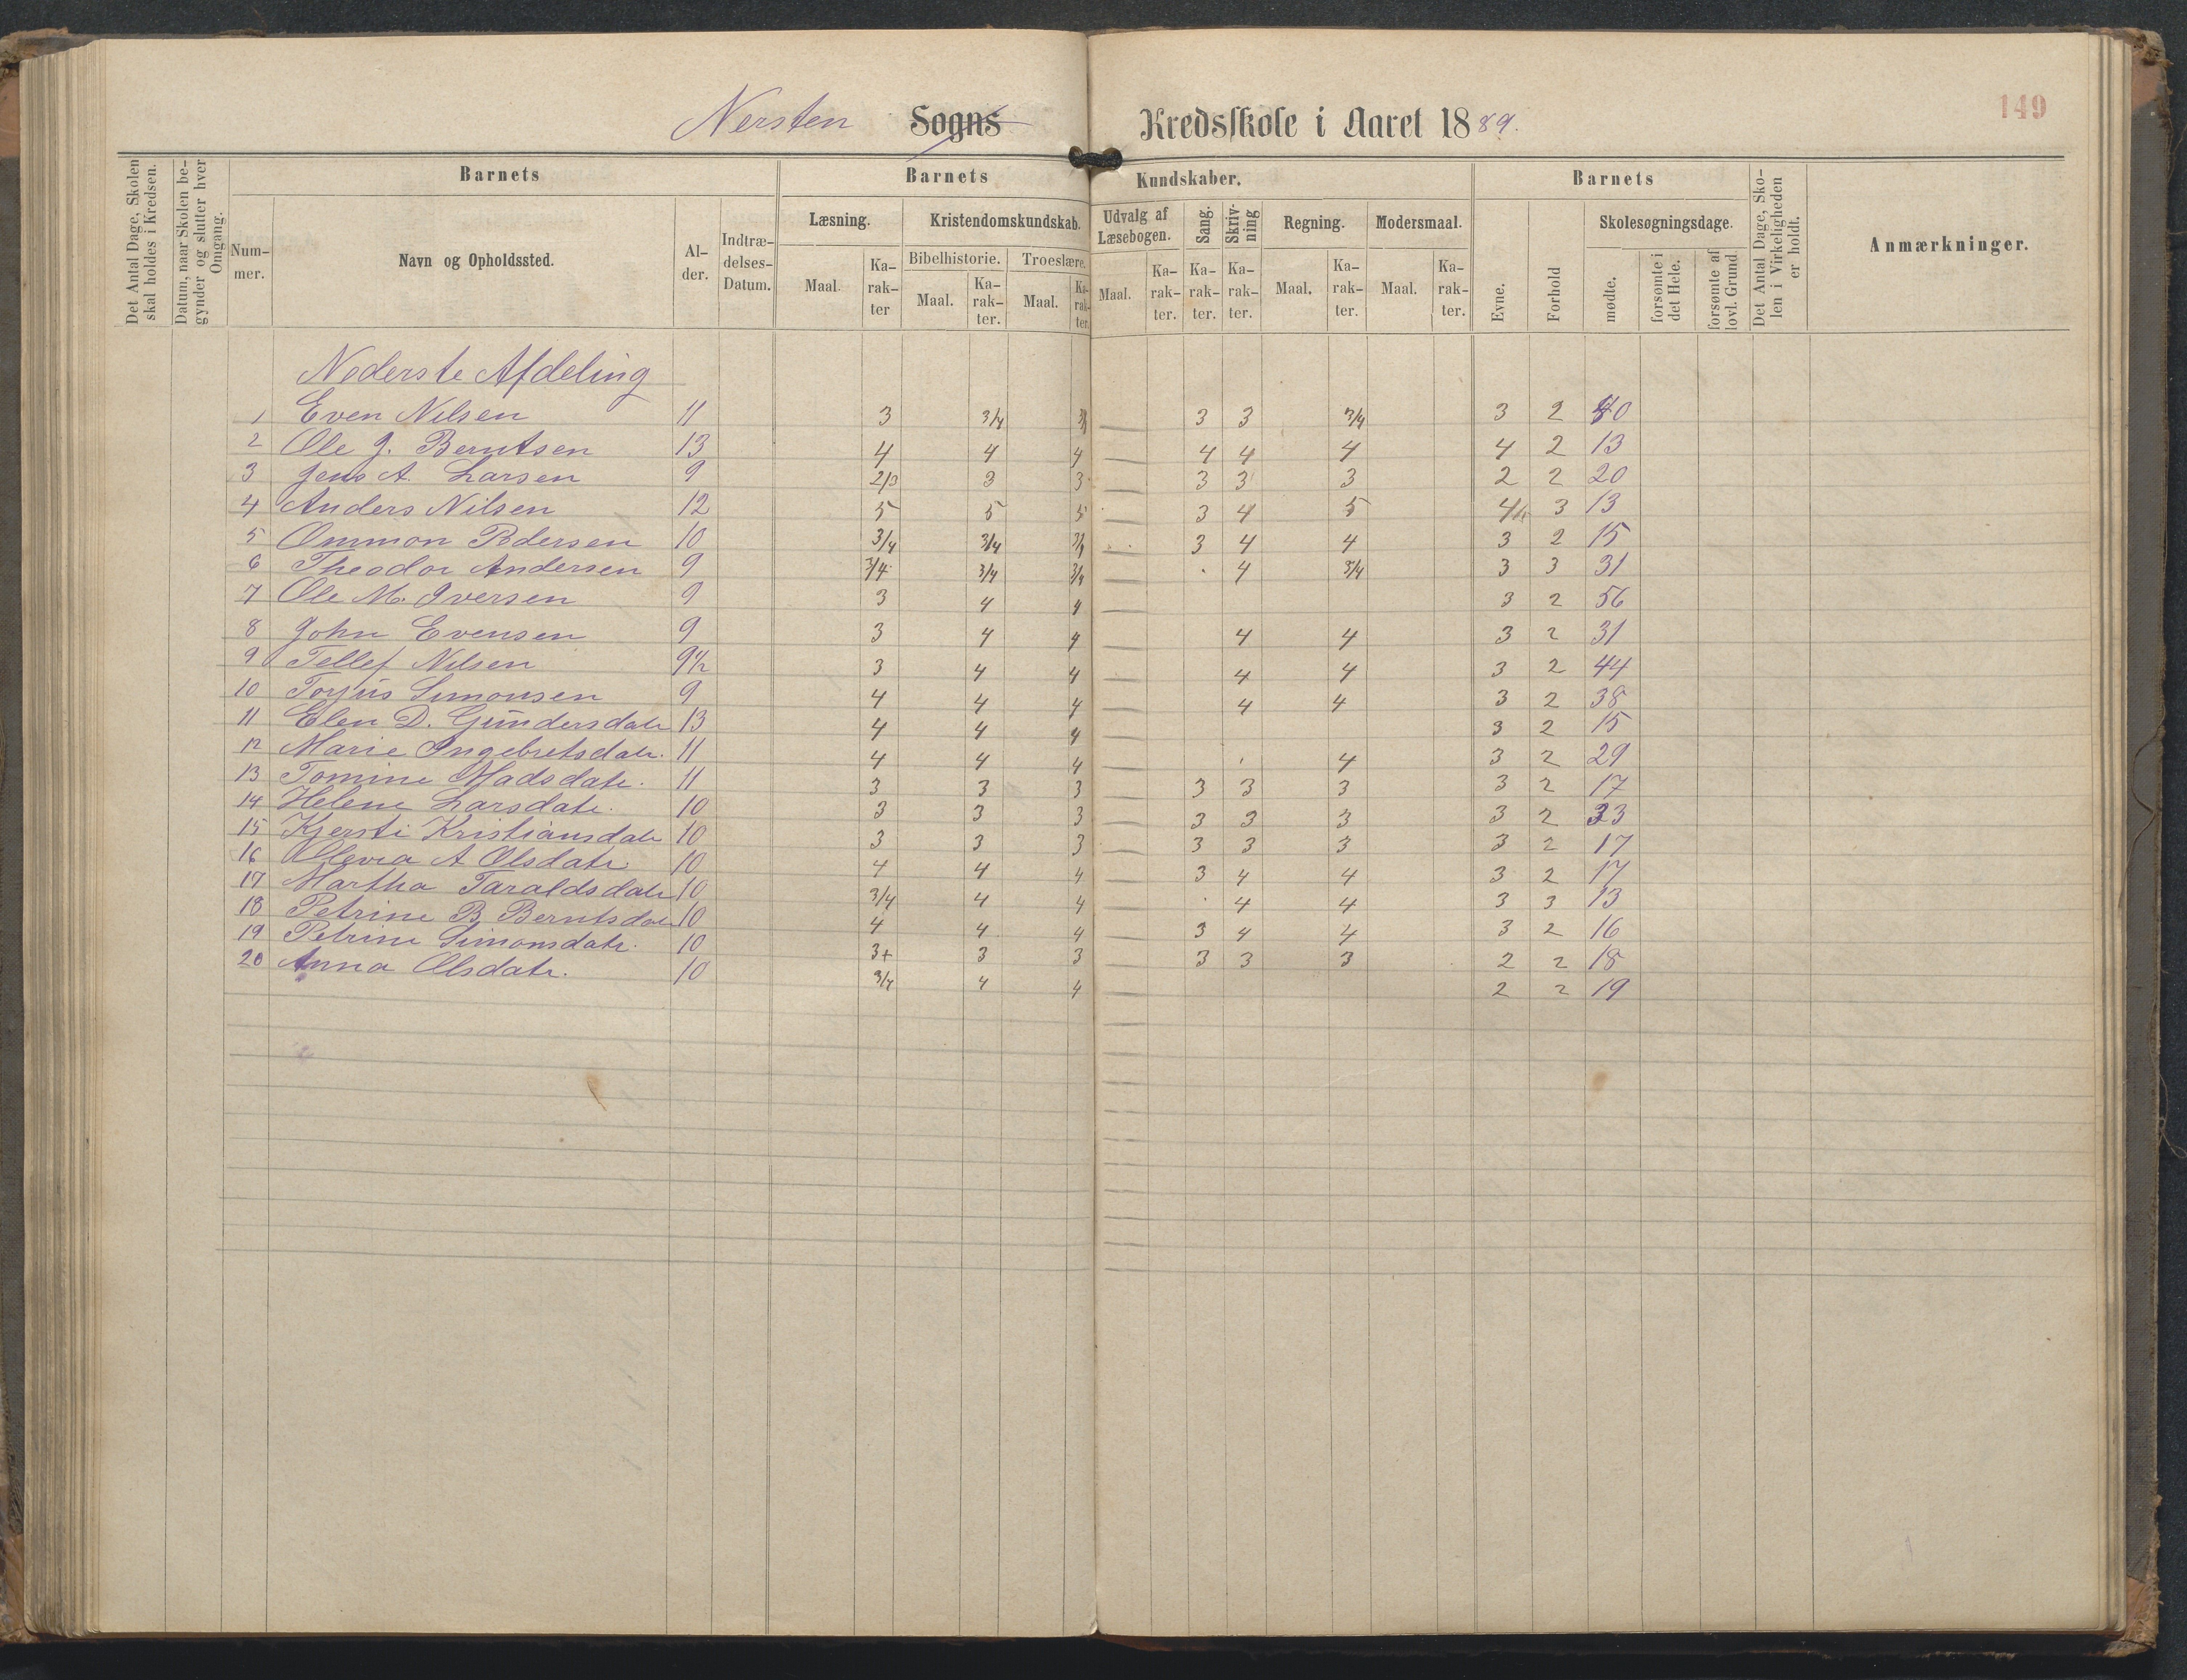 149
Nersten Sogns Kredsskole i Aaret 1889.
Det Antal Dage, Skolen skal holdes i Kredsen.
Datum, naar Skolen begynder og slutter hver Omgang.
Barnets
Nummer.
Navn og Opholdssted.
Alder.
Indtrædelses-Datum.
Barnets Kundskaber.
Læsning. Kristendomskundskab. Udvalg af Læsebogen. Sang. Skrivning Regning. Modersmaal.
Bibelhistorie. Troeslære.
Maal. Karakter Maal. Karakter. Maal. Karakter. Maal. Karakter. Karakter. Karakter. Maal. Karakter. Maal. Karakter.
Barnets
Evne. Forhold Skolesøgningsdage.
mødte. forsømte i det Hele. forsømte af lovl. Grund.
Det Antal Dage, Skolen i Virkeligheden er holdt.
Anmærkninger.
Nederste Afdeling
1 Even Nilsen 11 3 3/4 3/4 3 3 3/4 3 2 40
2 Ole J. Berntsen 13 4 4 4 4 4 4 4 2 13
3 Jens A. Larsen 9 2/3 3 3 3 3 3 2 2 20
4 Anders Nilsen 12 5 5 5 3 4 5 4 3 13
5 Ommon Pdersen 10 3/4 3/4 3/4 3 4 4 3 2 15
6 Theodor Andersen 9 3/4 3/4 3/4 4 3/4 3 3 31
7 Ole M. Iversen 9 3 4 4 3 2 56
8 John Evensen 9 3 4 4 4 4 3 2 31
9 Tellef Nilsen 9 1/2 3 4 4 4 4 3 2 44
10 Torjus Simonsen 9 4 4 4 4 4 3 2 38
11 Elen D. Gundersdatr 13 4 4 4 3 2 15
12 Marie Ingebretsdatr. 11 4 4 4 4 3 2 29
13 Tomine Madsdatr. 11 3 3 3 3 3 3 3 2 17
14 Helene Larsdatr. 10 3 3 3 3 3 3 3 2 33
15 Kjersti Kristiansdatr 10 3 3 3 3 3 3 3 2 17
16 Olevia A Olsdatr. 10 4 4 4 3 4 4 3 2 17
17 Martha Taraldsdatr 10 3/4 4 4 4 4 3 3 13
18 Petrine B Berntsdatr 10 4 4 4 3 4 4 3 2 16
19 Petrine Simonsdatr. 10 3+ 3 3 3 3 3 2 2 18
20 Anna Olsdatr. 10 3/4 4 4 2 2 19